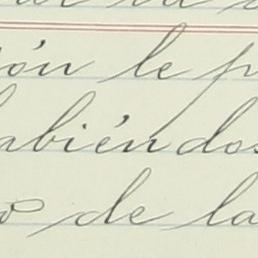 ión le p
abiéndos
o de la